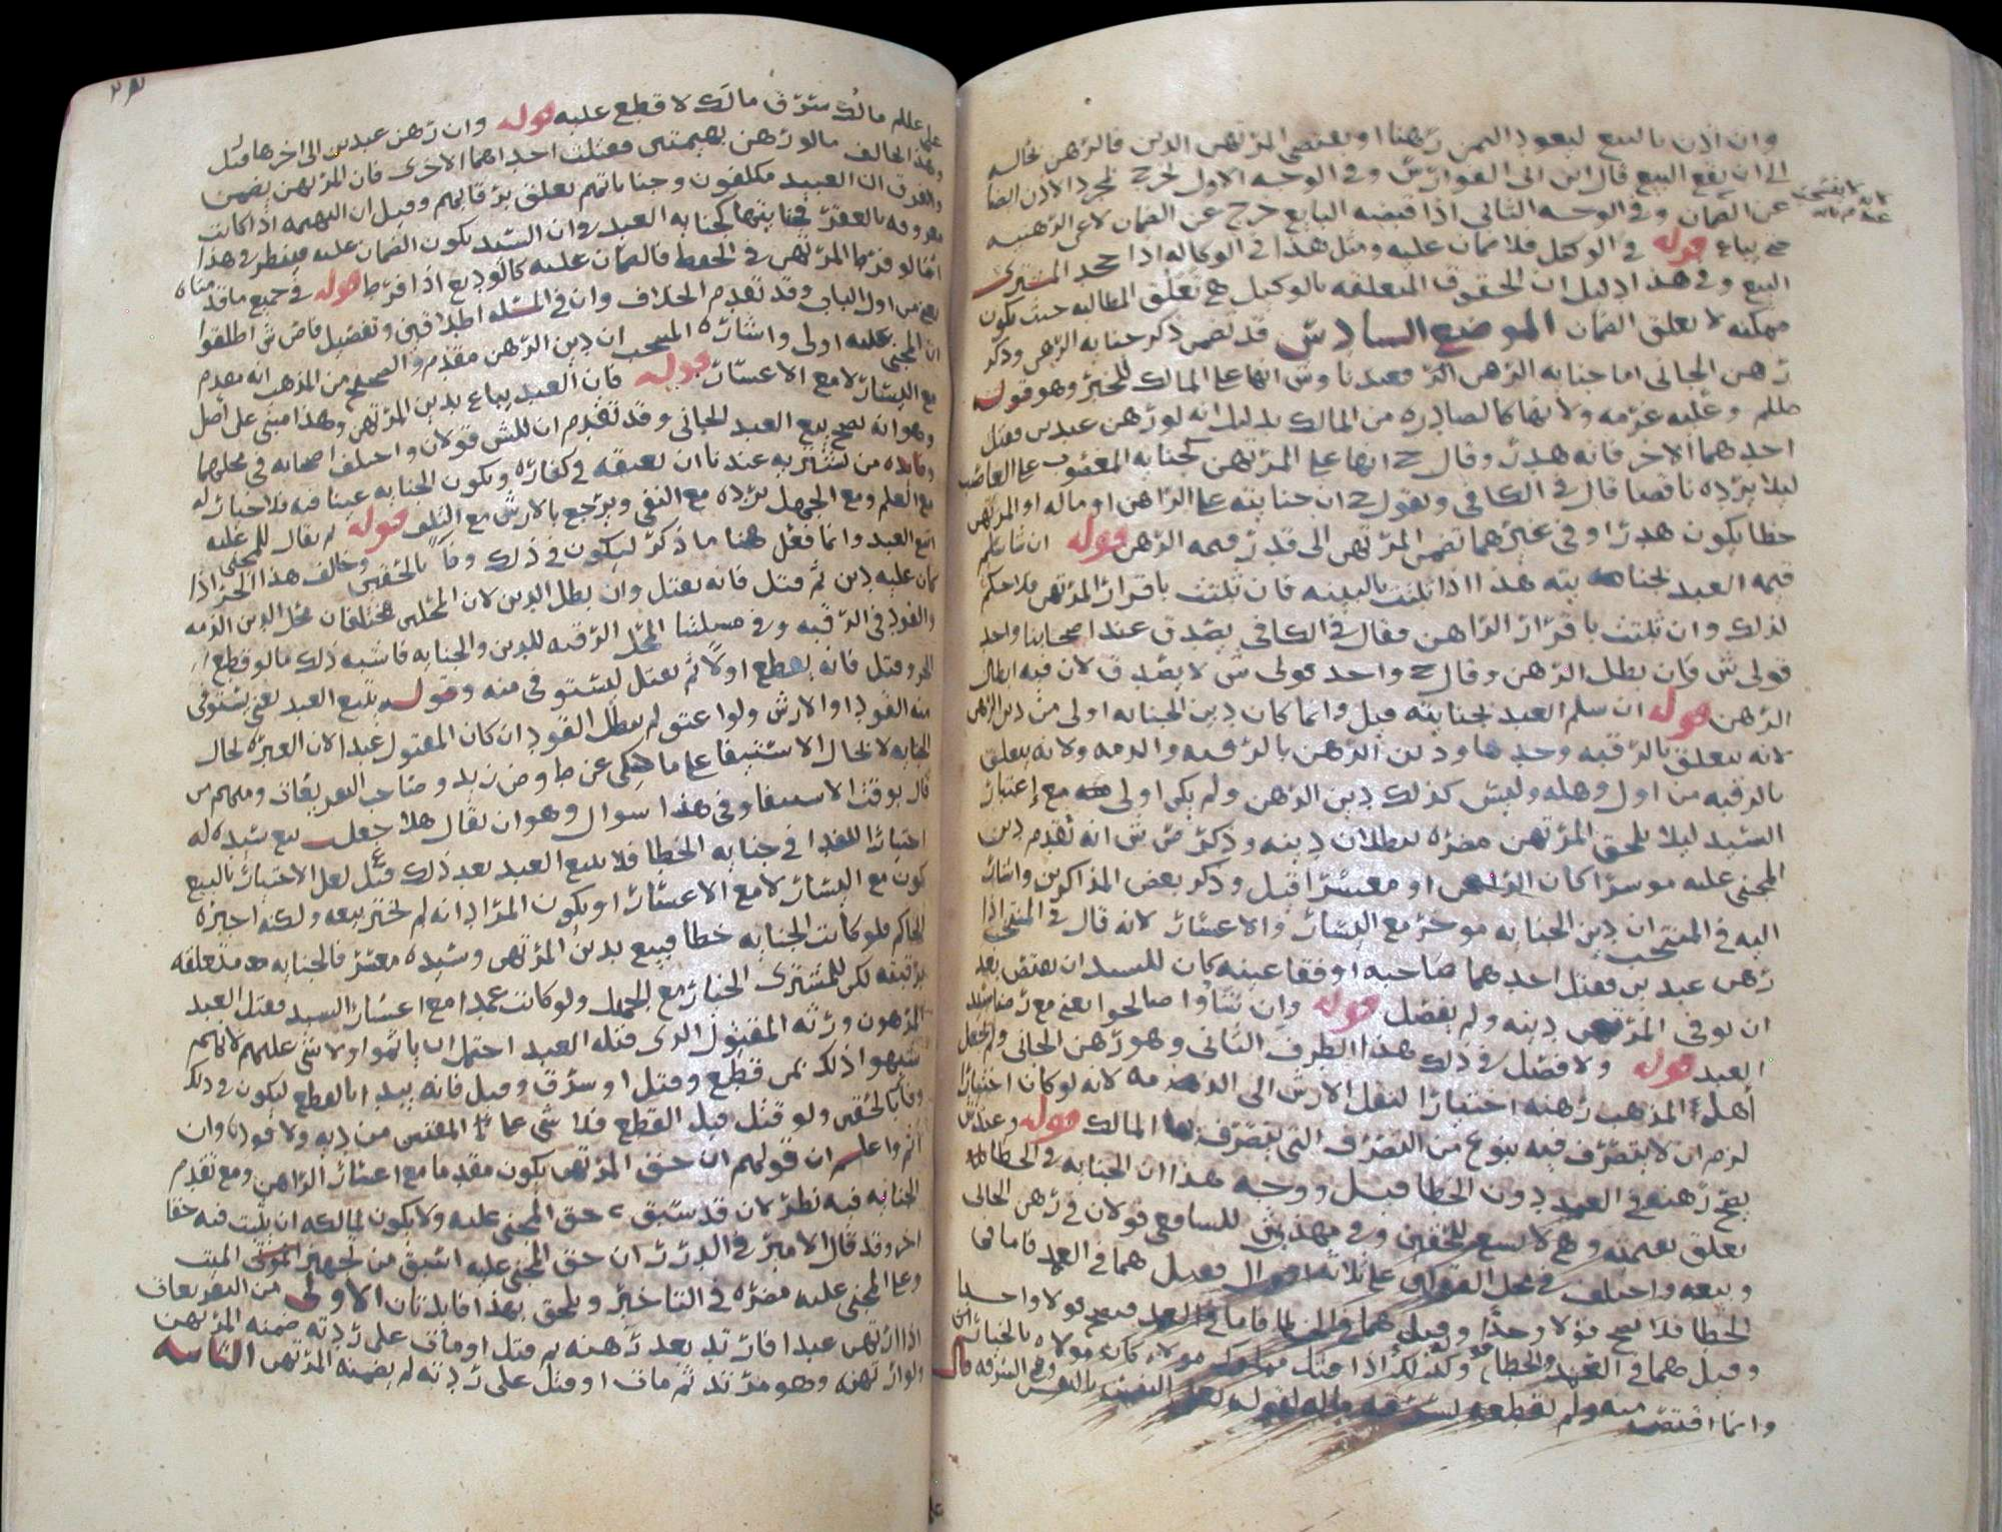 وان اذن بالبيع ليعود الثمن رهنا او يقتضي المرتهن الدين فالرهن بحاله
الى ان يقع البيع قال ابن ابي الفوارس وفي الوجه الاول لخرج لمجرد الاذن ايضا
عن الضمان وفي الوجه الثاني اذا قبضه البايع خرج عن الضمان لا عن الرهنيه
قوله في الوكيل فلا ضمان عليه ومثل هذا في الوكاله اذا جحد المشتري
البيع وفي هذا دليل ان الحقوق المتعلقه بالوكيل هي تعلق المطالبه حيث يكون
ممكنه لا تعلق الضمان الموضع السادس قد تضمن ذكر جنايه الرهن وذكر
رهن الجاني اما جنايه الرهن فعندنا وش انها على المالك للخبر وهو قوله
صللم وعليه غرمه ولانها كالصادره من المالك بدليل انه لو رهن عبدين فقتل
احدهما الاخر فانه هدر وقال ح انها على المرتهن كجنايه المغصوب على الغاصب
ليلا يرده ناقصا قال في الكافي ونقول ح ان جنايته على الراهن او ماله او المرتهن
خطا يكون هدرا وفي غيرهما تضمن المرتهن الى قدر قيمه الرهن قوله ان شا سلم
قيمه العبد لجنايته هذا اذا ثبتت بالبينه فان ثبتت باقرار المرتهن فلا حكم
لذلك وان ثبتت باقرار الراهن فقال في الكافي يصدق عند اصحابنا واحد
قولي ش فان بطل الرهن وقال ح واحد قولي ش لا يصدق لان فيه ابطال
الرهن قوله ان سلم العبد بجنايته قيل وانما كان دين الجنايه اولى من دين الرهن
لانه يتعلق بالرقبه وحدها ودين الرهن بالرقبه والذمه ولانه يتعلق
بالرقبه من اول وهله وليس كذلك دين الرهن ولم يكن اولى مع اعتبار
السيد ليلا يلحق المرتهن مضره ببطلان دينه وذكر ض ش انه تقدم دين
المجني عليه موسرا كان الراهن او معسرا قيل وذكر بعض المذاكرين واشار
اليه في المنتخب ان دين الجنايه موخر مع اليسار والاعسار لانه قال في المنتخب اذا
رهن عبدين فقتل احدهما صاحبه او فقا عينه كان للسيد ان يقتص بعد
ان يوفي المرتهن دينه ولم يفصل قوله وان شاوا صالحوا يعني مع رضا سيد
العبد قوله ولا فصل في ذلك هذا الطرف الثاني وهو رهن الجاني ولم يجعل
اهل المذهب رهنه اختيارا لنقل الارش الى الذمه لانه لو كان اختيارا
لزم ان لا يتصرف فيه بنوع من التصرف التي يتصرف بها المالك قوله وعند ش
يصح رهنه في العمد دون الخطا قيل ووجه هذا ان الجنايه في الخطا
تعلق بقيمته وهي لا تسع للحقين وفي مهذب ش للشافعي قولان في رهن الجاني
وبيعه واختلف في محل القولين على ثلاثه اقوال فقيل هما في العمد فاما في
الخطا فلا يصح قولا واحدا وقيل هما في الخطا فاما في العمد فيصح قولا واحدا
وقيل هما في العمد والخطا قوله وكذلك اذا قتل مملوك مولاه
وانما اقتص منه ولم نقطعه لسرقه ماله لقوله تعالى النفس بالنفس وفي السرقه قال
على عللم مالك سرق مالك لا قطع عليه قوله وان رهن عبدين الى اخرها قيل
وهذا الخالف مالو رهن بهيمتين فقتلت احداهما الاخرى فان المرتهن يضمن
والفرق ان العبيد مكلفون وجناياتهم تعلق برقابهم وقيل ان البهيمه اذا كانت
معروفه بالعقر فجنايتها كجنايه العبد وان السيد يكون الضمان عليه فينظر في هذا
اما لو فرط المرتهن في الحفظ فالضمان عليه كالوديع اذا فرط قوله في جميع ما قدمناه
يعني من اول الباب وقد تقدم الخلاف وان في المسله اطلاقين وتفصيل فاض ش اطلقوا
ان المجني عليه اولى واشاره المنتخب ان دين الرهن مقدم والصحيح من المذهب انه مقدم
مع اليسار لا مع الاعسار قوله فان العبد يباع بدين المرتهن وهذا مبني على اصل
وهو انه يصح بيع العبد الجاني وقد تقدم ان للش قولان واختلف اصحابه في محلهما
وفائده من يشتريه عندنا ان يعتقه في كفاره ويكون الجنايه عيبا فيه فلا خيار له
مع العلم ومع الجهل يرده مع البقي ويرجع بالارش مع التلف قوله لم يقال للمجني عليه
اتبع العبد وانما فعل هنا ما ذكر ليكون في ذلك وفا بالحقين وخالف هذا الحر اذا
كان عليه دين ثم قتل فانه يقتل وان بطل الدين لان المحلين مختلفان محل الدين الذمه
والقود في الرقبه وفي مسلتنا المحل الرقبه للدين والجنايه فاشبه ذلك مالو قطع
الحر وقتل فانه يقطع اولا ثم يقتل ليستوفى منه وقوله يتبع العبد يعني يستوفي
منه القود او الارش ولو اعتق لم يبطل القود ان كان المقتول عبدا لان العبره بحال
الجنايه لا بحال الاستيفا على ما حكى عن ط وض زيد وصاحب التفريعات ومنهم من
قال بوقت الاستيفا وفي هذا سوال وهو ان يقال هلا جعل بيع سيده له
اختيارا للفدا في جنايه الخطا فلا يتبع العبد بعد ذلك قيل لعل الاختيار بالبيع
يكون مع اليسار لا مع الاعسار او يكون المراد انه لم يختر بيعه ولكنه اجبره
الحاكم فلو كانت الجنايه خطا فبيع بدين المرتهن وسيده معسر فالجنايه متعلقه
برقبته لكن للمشتري الخيار مع الجهل ولو كانت عمدا مع اعسار السيد فقتل العبد
المرهون ورثه المقتول الذي قتله العبد احتمل ان ياثموا ولا شي عليهم لانهم
شبهوا ذلك بمن قطع وقتل او سرق وقيل فانه يبدا بالقطع ليكون في ذلك
وفا بالحقين ولو قتل قبل القطع فلا شي على المقتص من ديه ولا قود وان
اثم واعلم ان قولهم ان حق المرتهن يكون مقدما مع اعسار الراهن ومع تقدم
الجنايه فيه نظر لان قد سبق حق المجني عليه ولا يكون لمالكه ان يثبت فيه حقا
اخر وقد قال الامير في الدرر ان حق المجني عليه اسبق من تجهيز الموتى الميت
وعلى المجني عليه مضره في التاخير ويلحق بهذا فايدتان الاولى من التفريعات
اذا ارتهن عبدا فارتد بعد رهنه ثم قتل او مات على ردته ضمنه المرتهن
ولو ارتهنه وهو مرتد ثم مات او قتل على ردته لم يضمنه المرتهن الثانيه